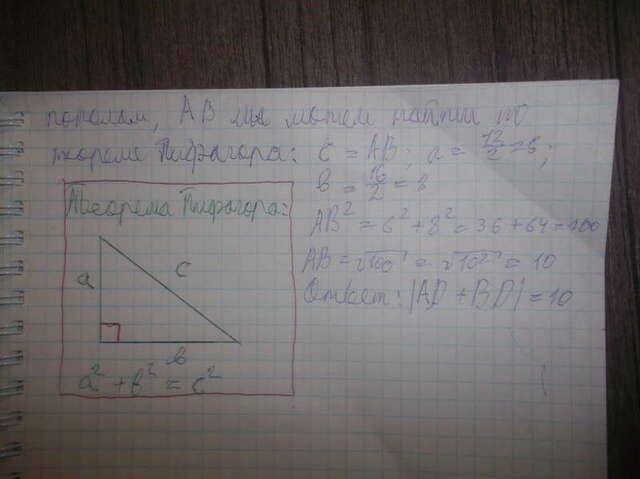 пополам, AB мы можем найти по
теореме Пифагора: c = AB; a = 12/2 = 6;
b = 16/2 = 8
AB² = 6² + 8² = 36 + 64 = 100
AB = √100 = √10² = 10
Ответ: |AD + BD| = 10
Теорема Пифагора:
a
c
b
a² + b² = c²